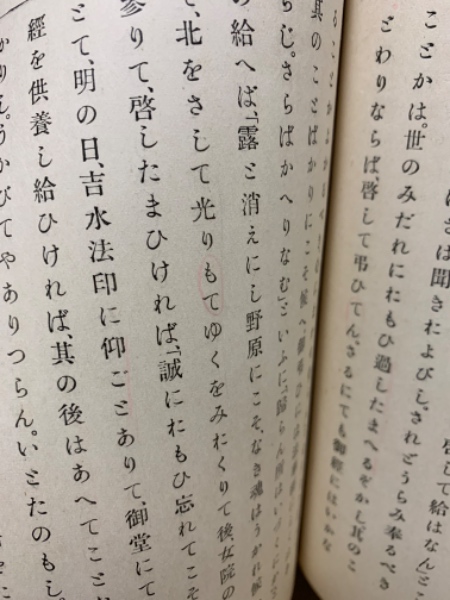 はさは聞されよびし。されどうらみ奉るべき
啓して給はなん」と
ことかは。世のみだれにれもひ過したまへるぞかし。其のこ
とわりならば、啓して弔ひてん。さるにても御經にはいかな
ることか
其のことばかりにこそ候へ。
らじ。さらばかへりなむ」といふに、
の給へば、「露と消えにし野原にこそ、なき魂はうかれ候
て、北をさして光りもてゆくをみれくりて後女院の
參りて、啓したまひければ、「誠にれもひ忘れてこそ
とて、明の日、吉水法印に仰ごとありて、御堂にて
經を供養し給ひければ、其の後はあへてこと
かりん。うかびてやありつらん。いとたのもし。